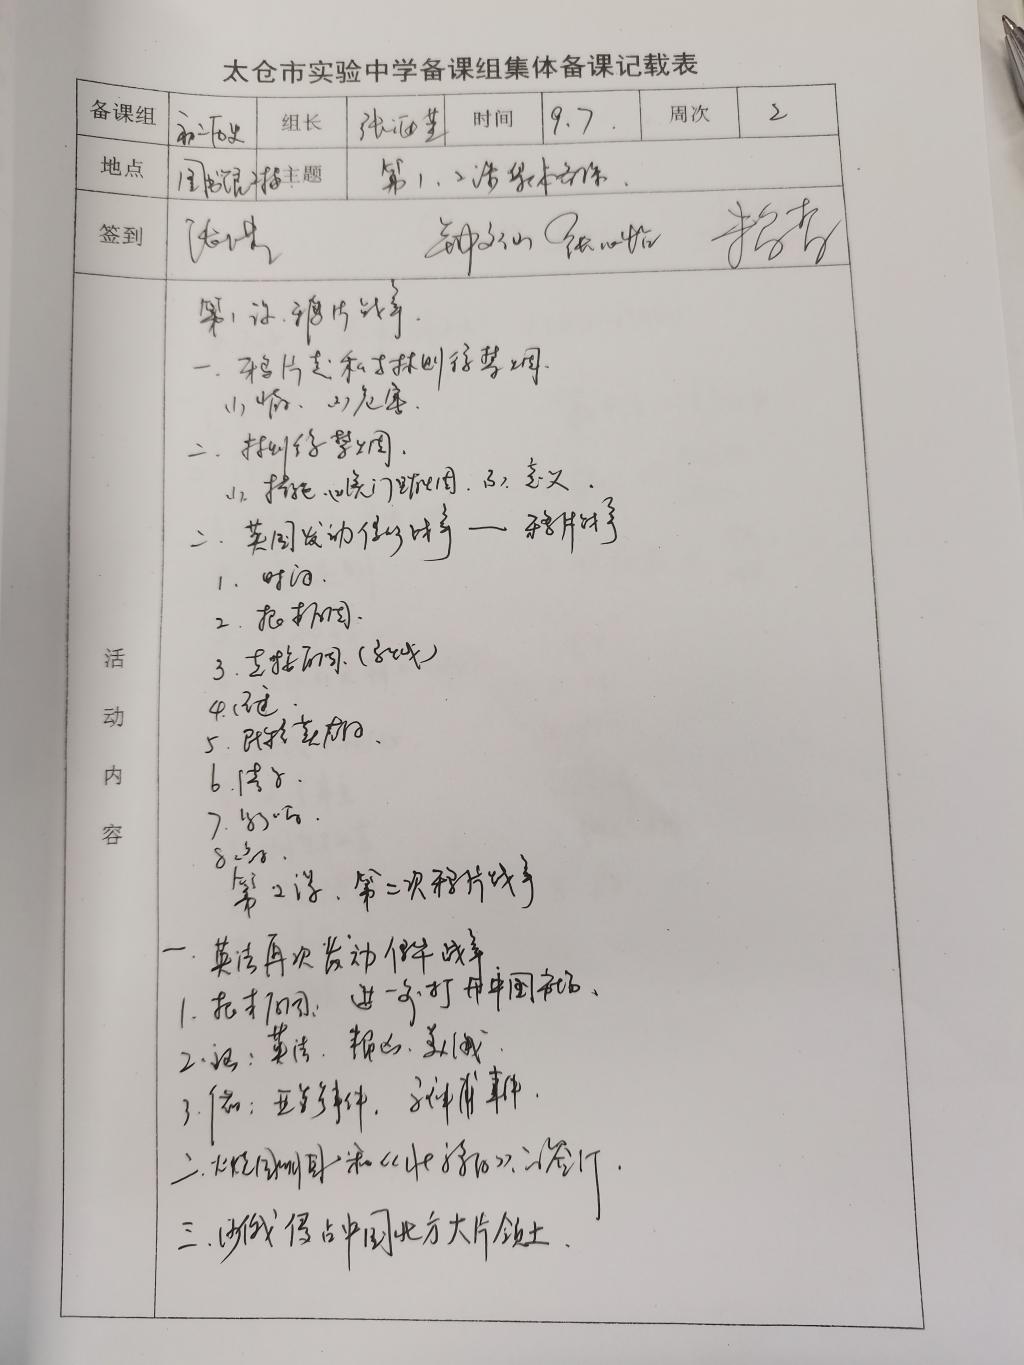 太仓市实验中学备课组集体备课记载表
备课组 初二历史 组长 时间 9.7. 周次 2
地点 主题 第1、2课集体备课.
签到
活动内容
第1课.鸦片战争.
一.鸦片走私与林则徐禁烟.
(2)危害.
二.林则徐禁烟.
(1)措施 虎门销烟 (3)意义.
二.英国发动侵华战争——鸦片战争
1.时间.
2.根本原因.
3.直接原因.(导火线)
4.
5.
6.
7.影响.
8
第2课.第二次鸦片战争
一.英法再次发动侵华战争
1.根本原因:进一步打开中国市场、
2. :英法. 美俄.
3. :亚罗号事件. 马神甫事件.
二.火烧圆明园和《 》的签订.
三.沙俄侵占中国北方大片领土.